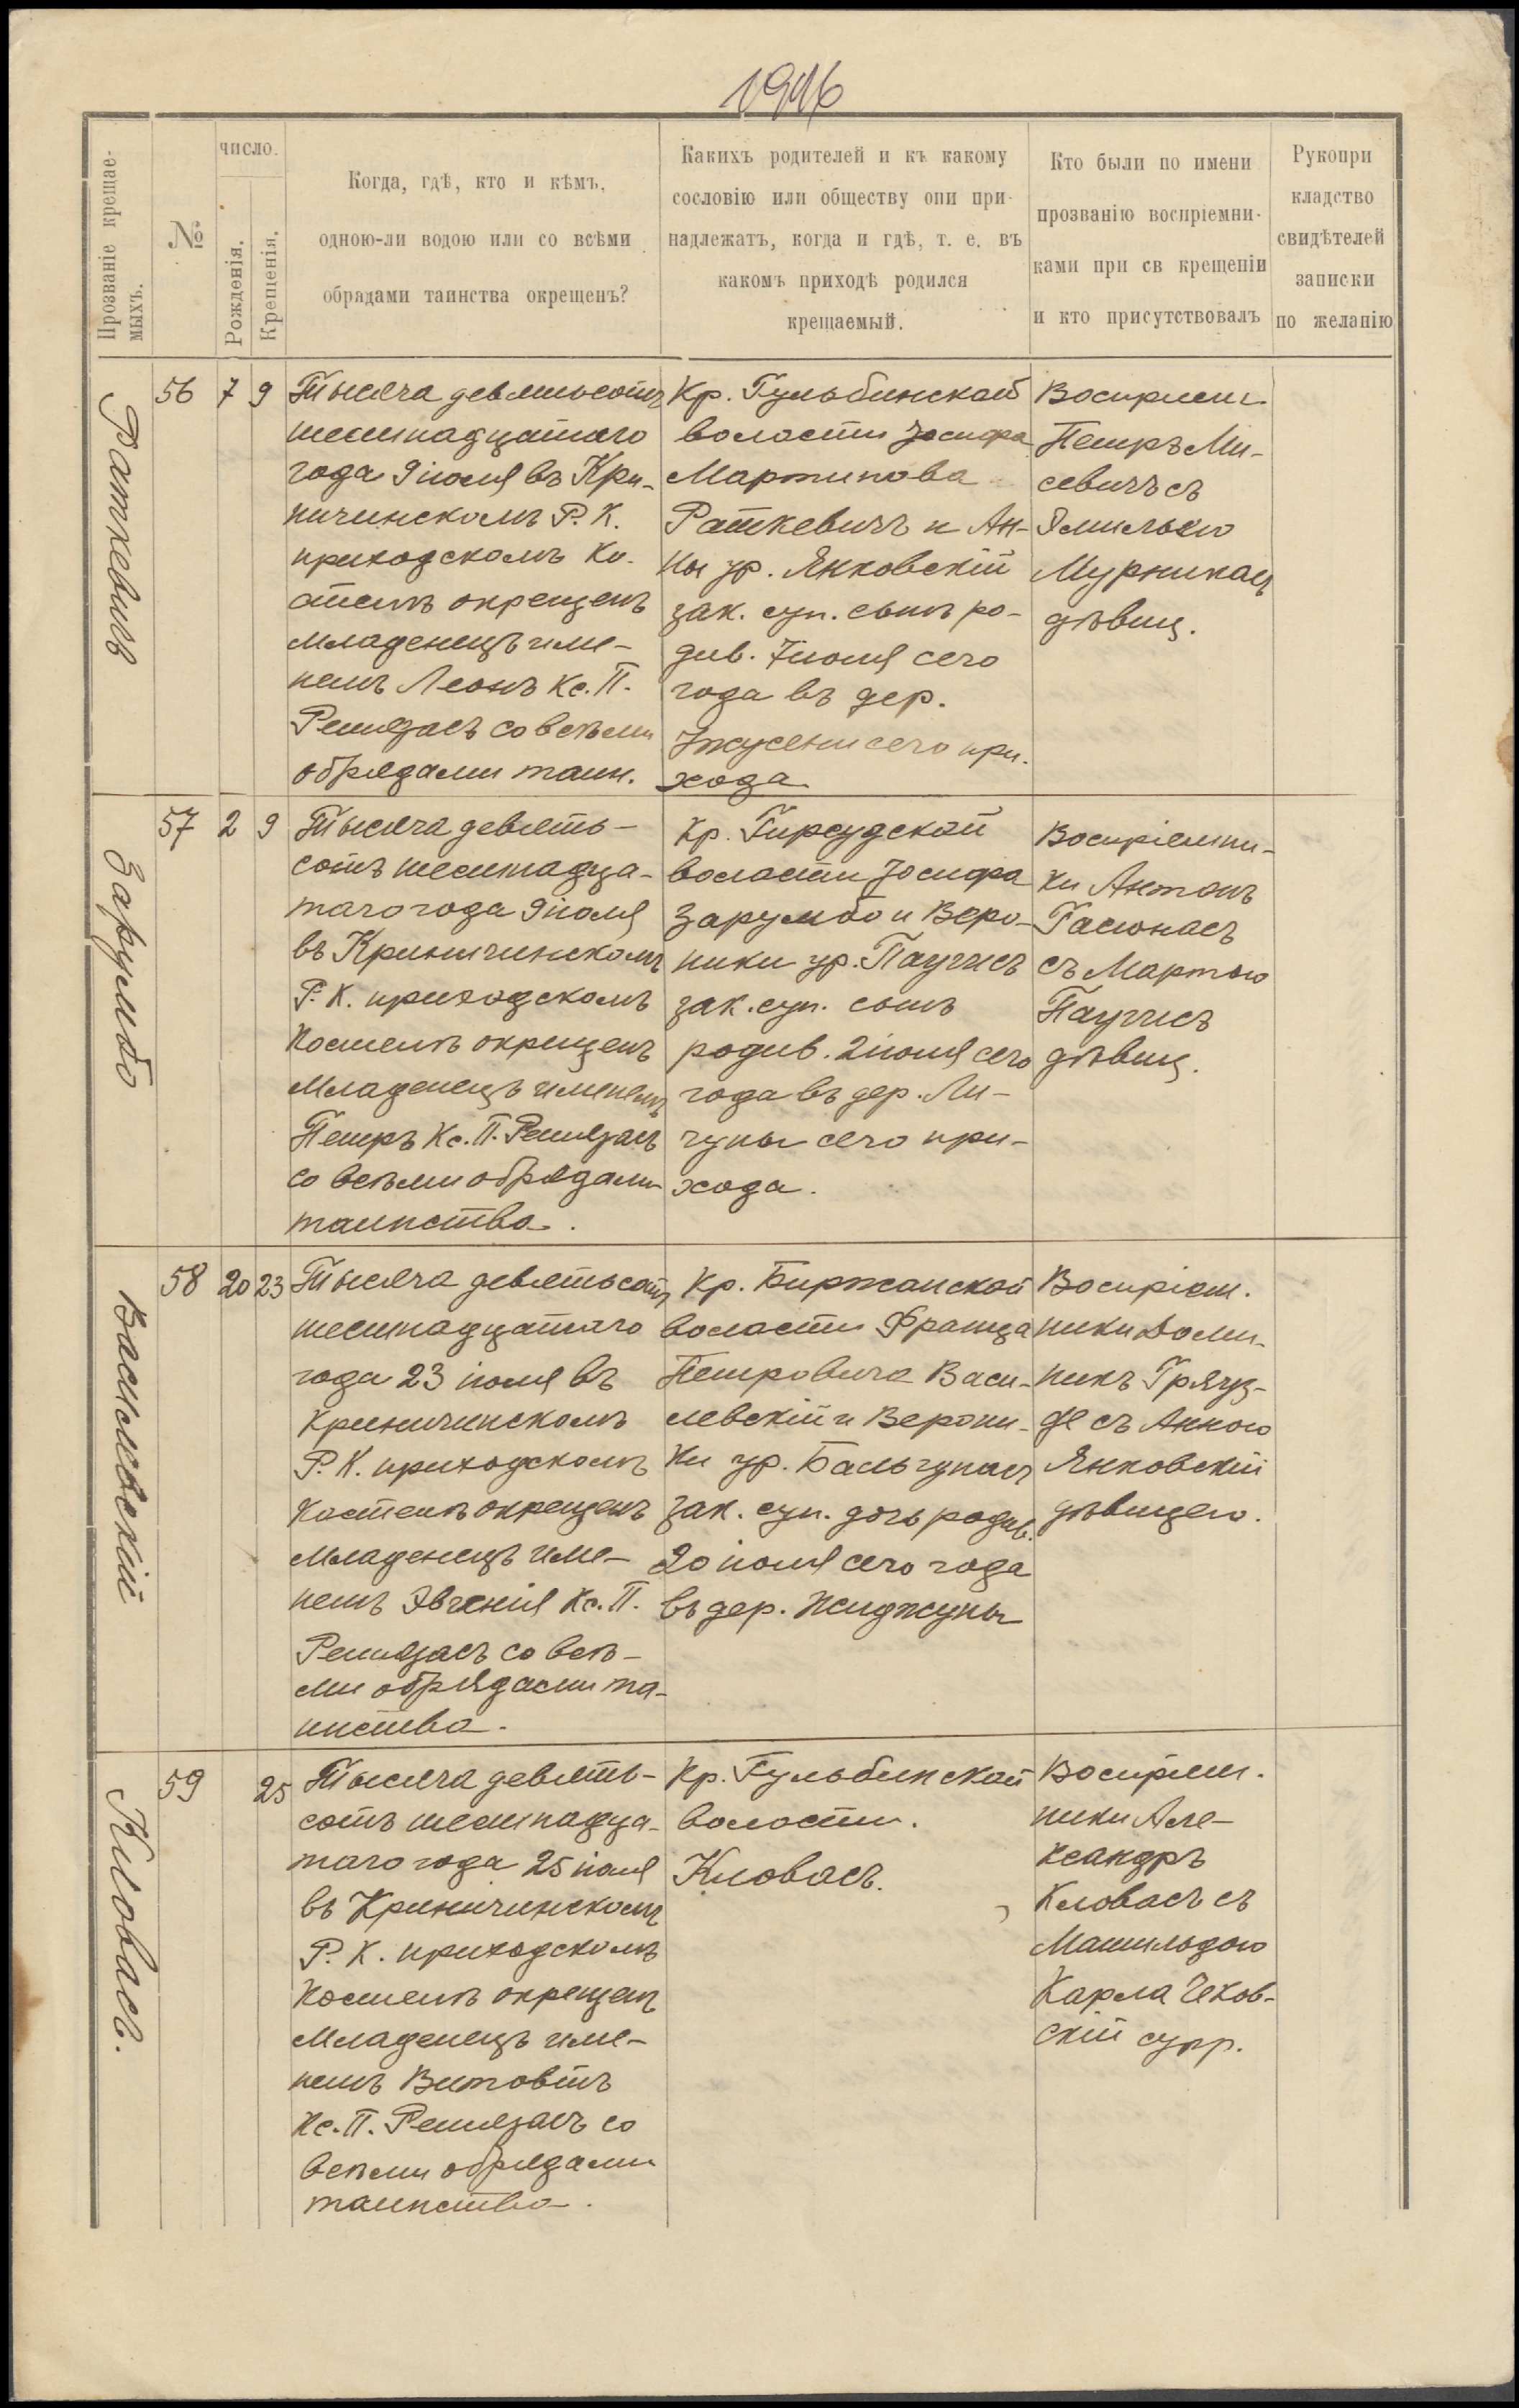 1916
Прозваніе крещае-
мыхъ.
№
число.
Рожденія.
Крещенія.
Когда, гдѣ, кто и кѣмъ,
одною-ли водою или со всѣми
обрадами таинства окрещенъ?
Какихъ родителей и къ какому
сословію или обществу они при-
надлежатъ, когда и гдѣ, т. е. въ
какомъ приходѣ родился
крещаемый.
Кто были по имени
прозванію воспріемни-
ками при св крещеніи
и кто присутствовалъ
Рукопри
кладство
свидѣтелей
записки
по желанію
Раткевичъ
56
7
9
Тысяча девятьсотъ
шестнадцатаго
года 9 іюля въ Кри-
ничинскомъ Р. К.
приходскомъ Ко-
стелѣ окрещенъ
младенецъ име-
немъ Леонъ Кс. П.
Ремезасъ со всѣми
обрядами таин.
Кр. Гульбинской
волости Іосифа
Мартинова
Раткевичъ и Ан-
ны ур. Янковскій
зак. суп. сынъ ро-
див. 7 іюля сего
года въ дер.
сего при-
хода
Восприем.
Петръ Ми-
севичъ съ
Эмилью
Мурникац
дѣвиц.
Зарумбо
57
2
9
Тысяча девять-
сотъ шестнадца-
таго года 9 іюля
въ Криничинскомъ
Р. К. приходскомъ
Костелѣ окрещенъ
младенецъ именемъ
Петръ Кс. П. Ремезасъ
со всѣми обрядами
таинства.
Кр. Гирсудской
волости Іосифа
Зарумбо и Веро-
ники ур. Паугисъ
зак. суп. сынъ
родив. 2 іюля сего
года въ дер. Ли-
чуны сего при-
хода.
Воспріемни-
ки Антонъ
Гасюнасъ
съ Мартою
Паугисъ
дѣвиц.
Василевскій
58
20
23
Тысяча девятьсотъ
шестнадцатаго
года 23 іюля въ
Криничинскомъ
Р. К. приходскомъ
Костелѣ окрещенъ
младенецъ име-
немъ Эвгенія Кс. П.
Ремезасъ со всѣ-
ми обрядами та-
инства.
Кр. Биржанской
волости Франца
Петровича Васи-
левскій и Верони-
ки ур. Бальчунасъ
зак. суп. дочь родив.
20 іюля сего года
въ дер. Жиджуны
Воспріем.
ники Доми-
никъ Грауз-
де съ Анною
Янковскій
дѣвицею.
Кловасъ.
59
25
Тысяча девять-
сотъ шестнадца-
таго года 25 іюля
въ Криничинскомъ
Р. К. приходскомъ
Костелѣ окрещенъ
младенецъ име-
немъ Витовтъ
Кс. П. Ремезасъ со
всѣми обрядами
таинства.
Кр. Гульбинской
волости.
Кловасъ.
Воспріем.
ники Але-
ксандръ
Кловасъ съ
Матильдою
Карла Чехов-
скій супр.